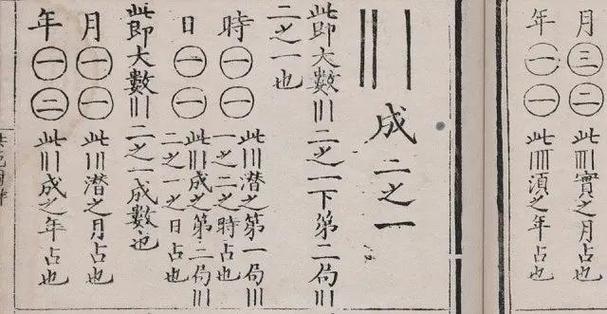 月三二此||||實之月占也
年一一此||||須之年占也
|| |成二之一
此即大數|||二之一下第二局|||
二之一也
時一一此|||潜之第一局|||
一之二之時占也
日一一此|||成之第二局|||
二之一之日占也
此即大數|||二之一成數也
月一一此|||潜之月占也
年一二此|||成之年占也